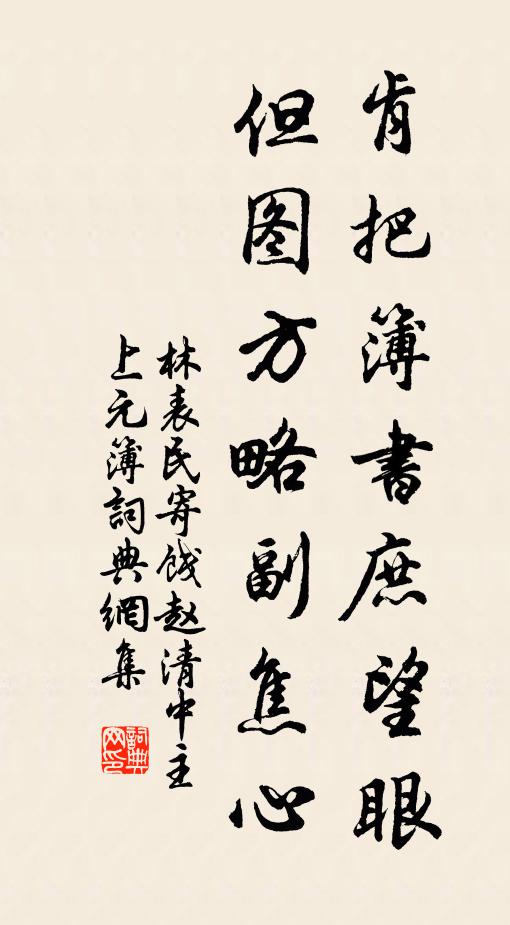 肯把簿書庶望眼
但图方略副焦心
林表民寄餞赵清中主
上元簿詞典網集
詞典
网印